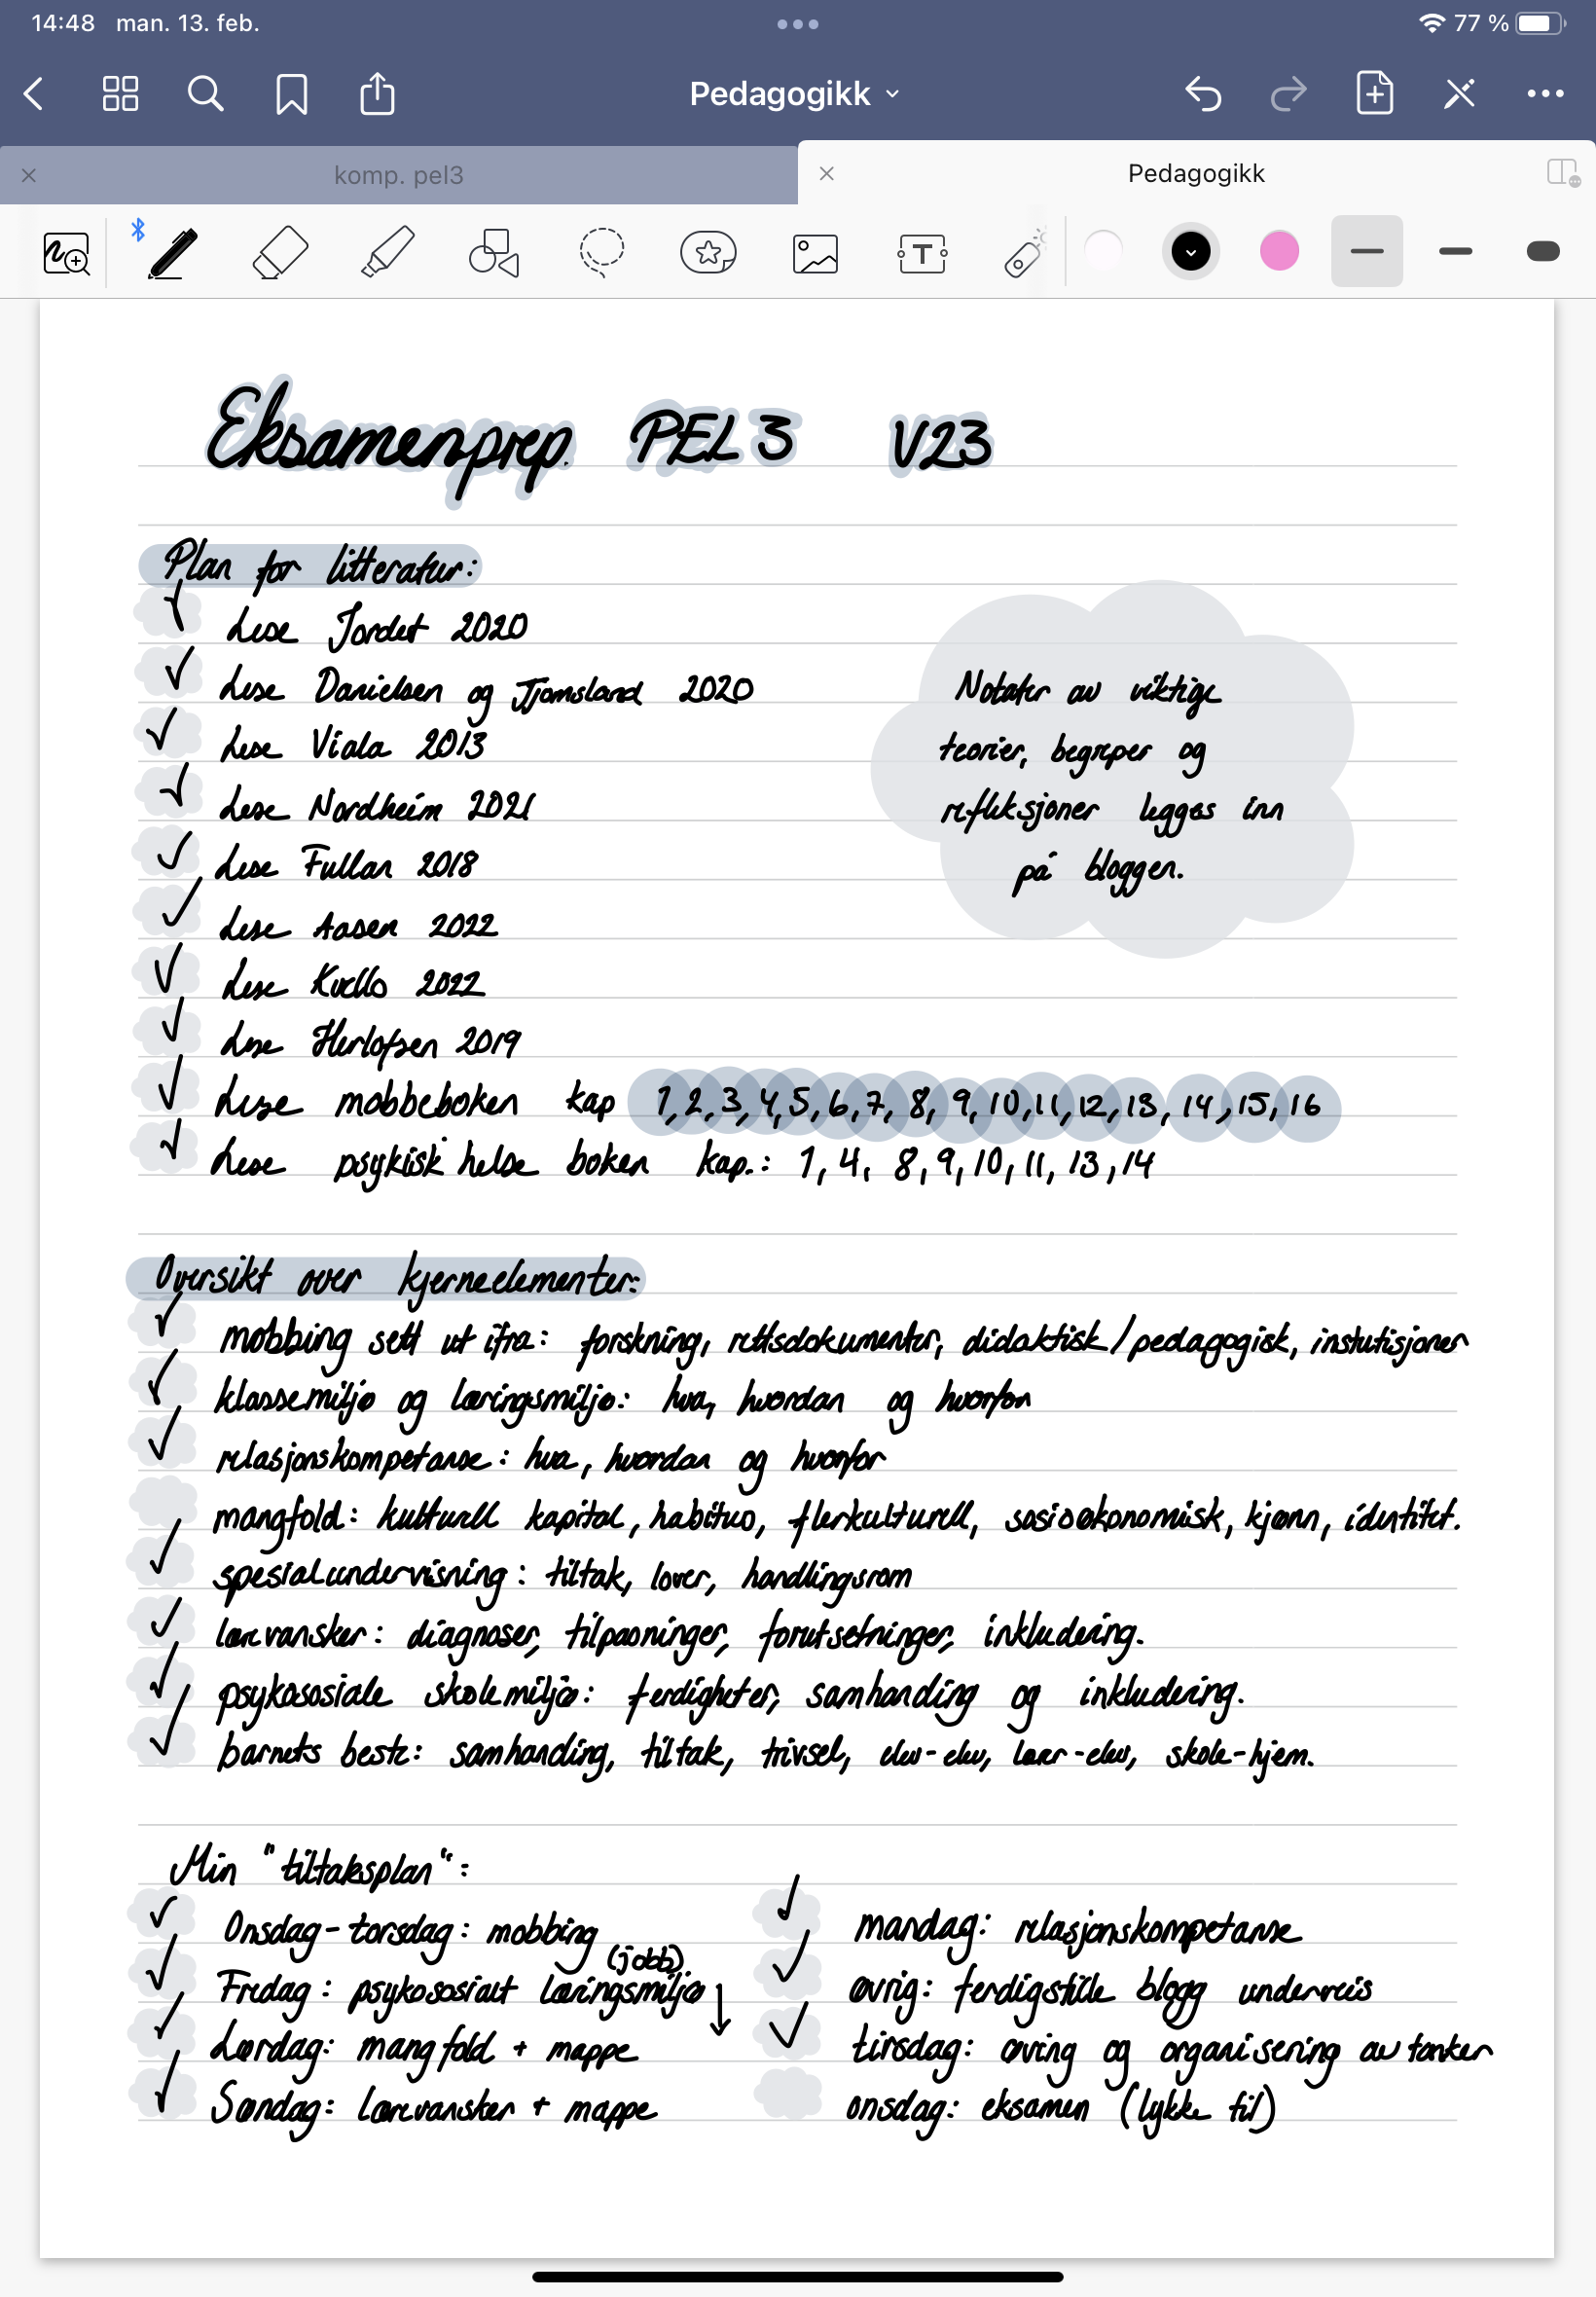 14:48 man. 13. feb.
77 %
Pedagogikk
komp. pel3
Pedagogikk
T
Eksamenprep. PEL 3 V23
Plan for litteratur:
Lese Jordet 2020
Lese Danielsen og Tjomsland 2020
Lese Viala 2013
Lese Nordheim 2021
Lese Fullan 2018
Lese Aasen 2022
Lese Kvello 2022
Lese Herlofsen 2019
Lese mobbeboken kap 1, 2, 3, 4, 5, 6, 7, 8, 9, 10, 11, 12, 13, 14, 15, 16
Lese psykisk helse boken kap.: 1, 4, 8, 9, 10, 11, 13, 14
Notater av viktige
teorier, begreper og
refleksjoner legges inn
på bloggen.
Oversikt over kjerneelementer:
mobbing sett ut ifra: forskning, rettsdokumenter, didaktisk/pedagogisk, instutisjoner
klassemiljø og læringsmiljø: hva, hvordan og hvorfor
relasjonskompetanse: hva, hvordan og hvorfor
mangfold: kulturell kapital, habitus, flerkulturell, sosioøkonomisk, kjønn, identitet.
spesialundervisning: tiltak, lover, handlingsrom
lærevansker: diagnoser, tilpasninger, forutsetninger, inkludering.
psykososiale skolemiljø: ferdigheter, samhanding og inkludering.
barnets beste: samhanding, tiltak, trivsel, elev-elev, lærer-elev, skole-hjem.
Min "tiltaksplan":
Onsdag-torsdag: mobbing
(jobb)
Fredag: psykososialt læringsmiljø
Lørdag: mangfold + mappe
Søndag: lærevansker + mappe
mandag: relasjonskompetanse
øvrig: ferdigstille blogg underveis
tirsdag: øving og organisering av tanker
onsdag: eksamen (lykke til)